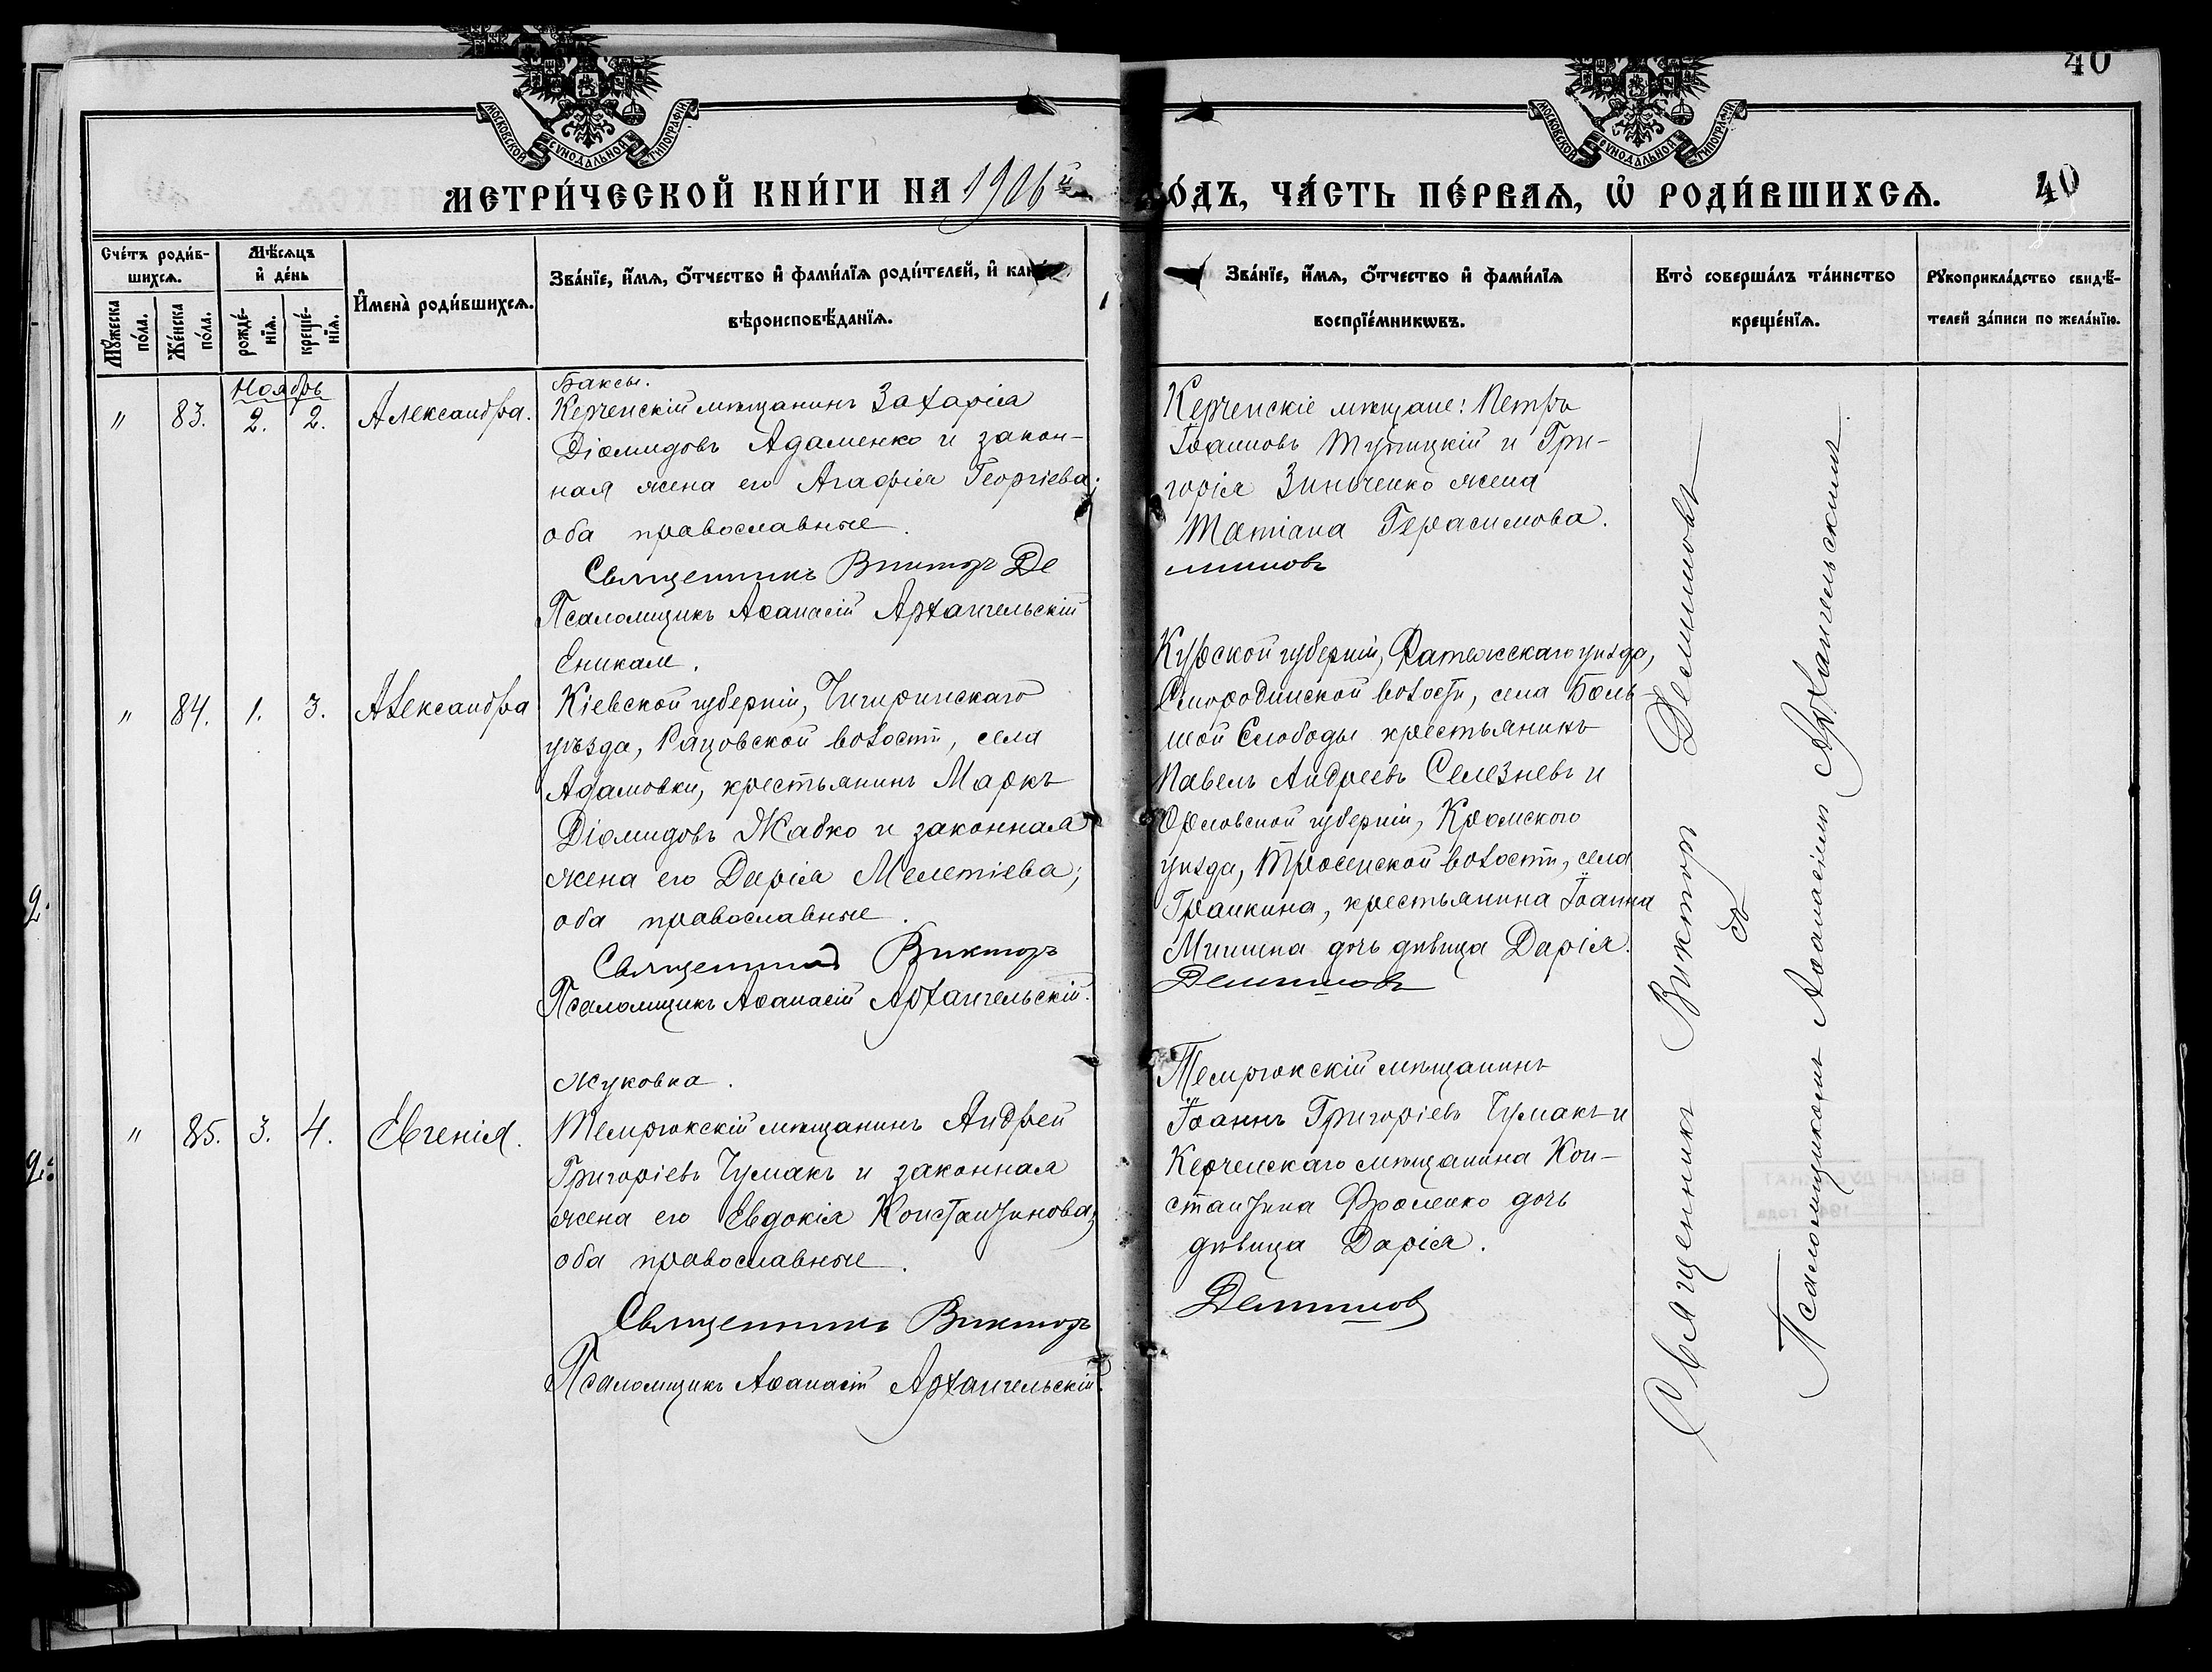 40
МОСКОВСКОЙ СУНОДАЛЬНОЙ ТИПОГРАФІИ
МОСКОВСКОЙ СУНОДАЛЬНОЙ ТИПОГРАФІИ
МЕТРИ́ЧЕСКОЙ КНИ́ГИ НА 1906й
О́ДЪ, ЧА́СТЬ ПЕ́РВАѦ, Ѡ҆ РОДИ́ВШИХСѦ.
40
Сче́тъ роди́в-
шихсѧ.
Мѣ́сѧцъ
и҆ де́нь
Мꙋ́жеска
по́ла.
Же́нска
по́ла.
рожде́-
нїѧ.
креще́-
нїѧ.
И҆мена̀ роди́вшихсѧ.
Зва́нїе, и҆́мѧ, ѻ҆́тчество и҆ фами́лїѧ роди́телей, и҆
вѣроисповѣ́данїѧ.
Зва́нїе, и҆́мѧ, ѻ҆́тчество и҆ фами́лїѧ
воспрїе́мникѡвъ.
Кто̀ соверша́лъ та́инство
креще́нїѧ.
Рꙋкоприкла́дство свидѣ́-
телей за́писи по жела́нїю.
Ноябрь
" 83. 2. 2. Александра.
Баксы.
Керченскій мѣщанинъ Захарія
Діомидовъ Адаменко и закон-
ная жена его Агафія Георгіева;
оба православные.
Священникъ Викторъ Де
Псаломщикъ Аѳанасій Архангельскій
Керченскіе мѣщане: Петръ
Іоанновъ Тупицкій и Гри-
горія Зинченко жена
Татіана Герасимова.
миновъ
" 84. 1. 3. Александра
Еникале.
Кіевской губерніи, Чигиринскаго
уѣзда, Рацовской волости, села
Адамовки, крестьянинъ Маркъ
Діомидовъ Жабко и законная
жена его Дарія Мелетіева;
оба православные.
Священникъ Викторъ
Псаломщикъ Аѳанасій Архангельскій.
Курской губерніи, Фатежскаго уѣзда,
Смородинской волости, села Боль-
шой Слободы крестьянинъ
Павелъ Андреевъ Селезневъ и
Орловской губерніи, Кромского
уѣзда, Тросенской волости, села
Гранкина, крестьянина Іоанна
Мишина дочь дѣвица Дарія.
Деминовъ
" 85. 3. 4. Евгенія.
Жуковка.
Темрюкскій мѣщанинъ Андрей
Григоріевъ Чумакъ и законная
жена его Евдокія Константинова;
оба православные.
Священникъ Викторъ
Псаломщикъ Аѳанасій Архангельскій.
Темрюкскій мѣщанинъ
Іоаннъ Григоріевъ Чумакъ и
Керченскаго мѣщанина Кон-
стантина Фроленко дочь
дѣвица Дарія.
Деминовъ
Священникъ Викторъ Деминовъ
съ
Псаломщикомъ Аѳанасіемъ Архангельскимъ.